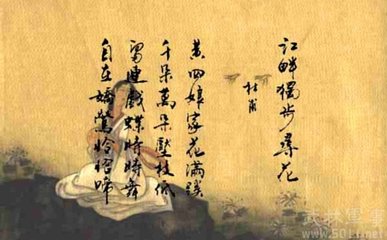 江畔獨步尋花
杜甫
黄四娘家花滿蹊
千朵萬朵壓枝低
留連戲蝶時時舞
自在嬌鶯恰恰啼